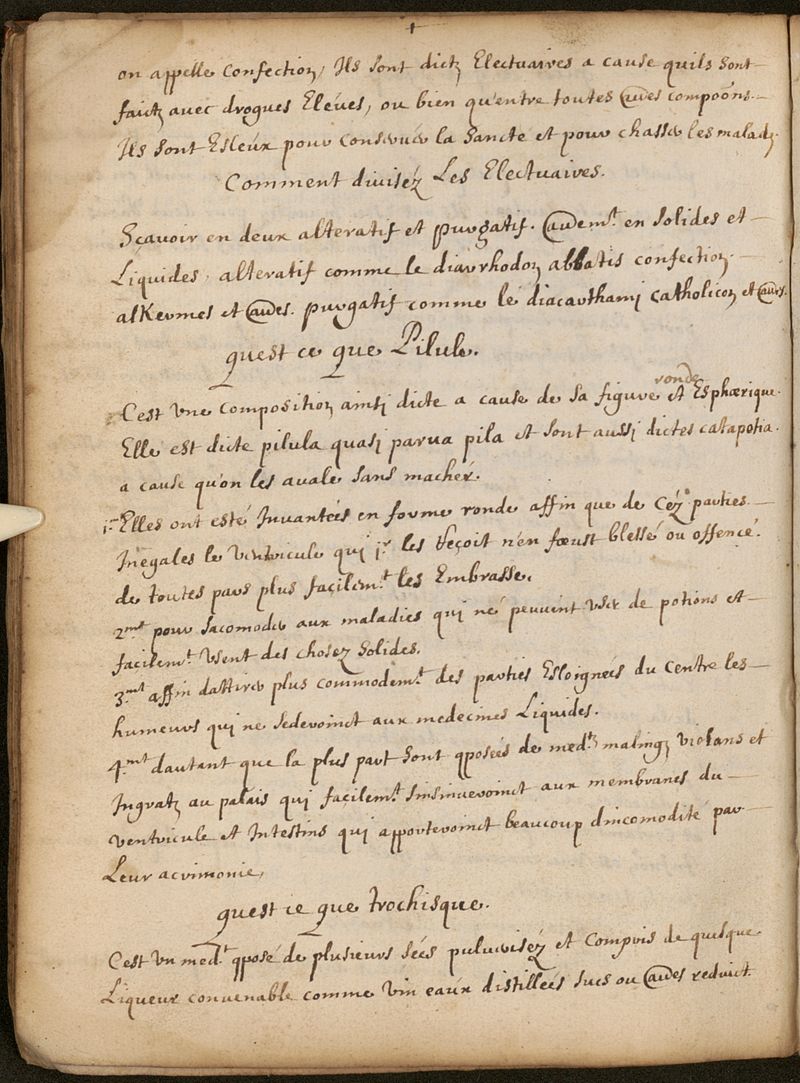 on appelle Confection, Ils sont dictz Electuaires a cause quils sont
faictz avec drogues Eleües, ou bien qu'entre toutes aües compoōns
Ils sont Esleux pour Conserver la Sancté et pour chasser les maladz.
Comment divisez Les Electuaires.
Sçavoir en deux alteratif et purgatif. aüem.t en Solides et
Liquides. alteratif comme le diarrhodon abbatis confection
alkermes et aües. purgatif comme le diacarthami catholicon et aües.
quest ce que Pilule.
C'est Une Composition ainsi dicte a cause de sa figure ronde et Esphærique.
Elle est dicte pilula quasi parua pila et sont aussi dictes catapotia.
a cause qu'on les avale sans macher.
i.o Elles ont esté Invantées en forme ronde affin que de Céz parties
Inégales le Ventricule qui j.r les reçoit n'en fœust blessé ou offencé.
de toutes pars plus facilem.t les Embrasse.
2.mt pour sacomoder aux maladies qui né peuvent User de potions et
facilem.t Usent des chosez Solides.
3.mt affin dattirer plus commodem.t des parties Esloignées du Centre les
humeurs qui ne sederoinct aux medecines Liquides.
4.mt dautant que la plus part sont qposées de med.ts malings violans et
Ingratz au palais qui facilem.t s'insinueroinct aux membranes du
ventricule et Intestins qui apporteroinct beaucoup dincomodité par
Leur acrimonie,
quest ce que trochisque.
C'est Un med.t qposé de plusieurs sées pulverisez et Compris de quelque
Liqueur convenable comme Vin eaux distillées sucs ou aües reduict